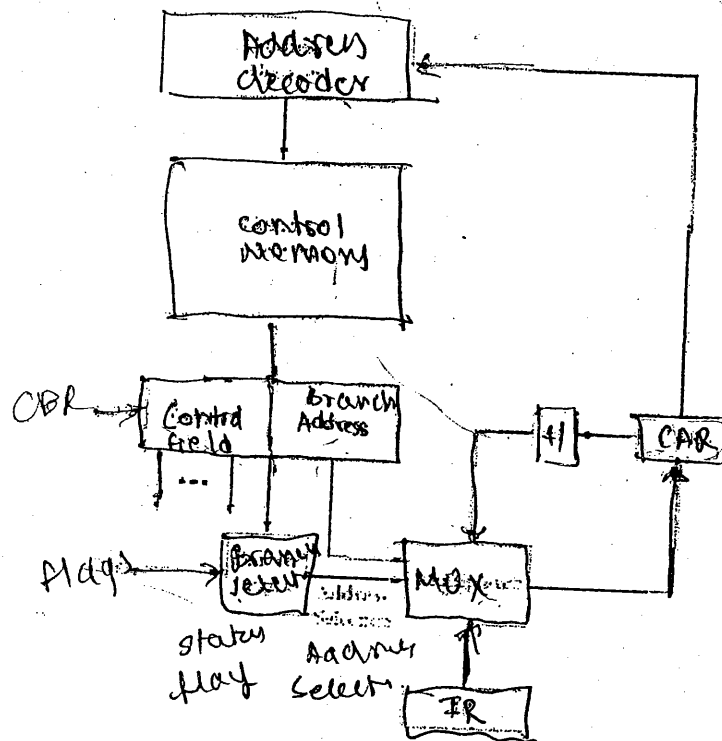 Address
decoder
control
memory
CBR
Control
field
Branch
Address
...
+1
CAR
flags
Branch
MUX
Address
status
flag
Address
select
IR